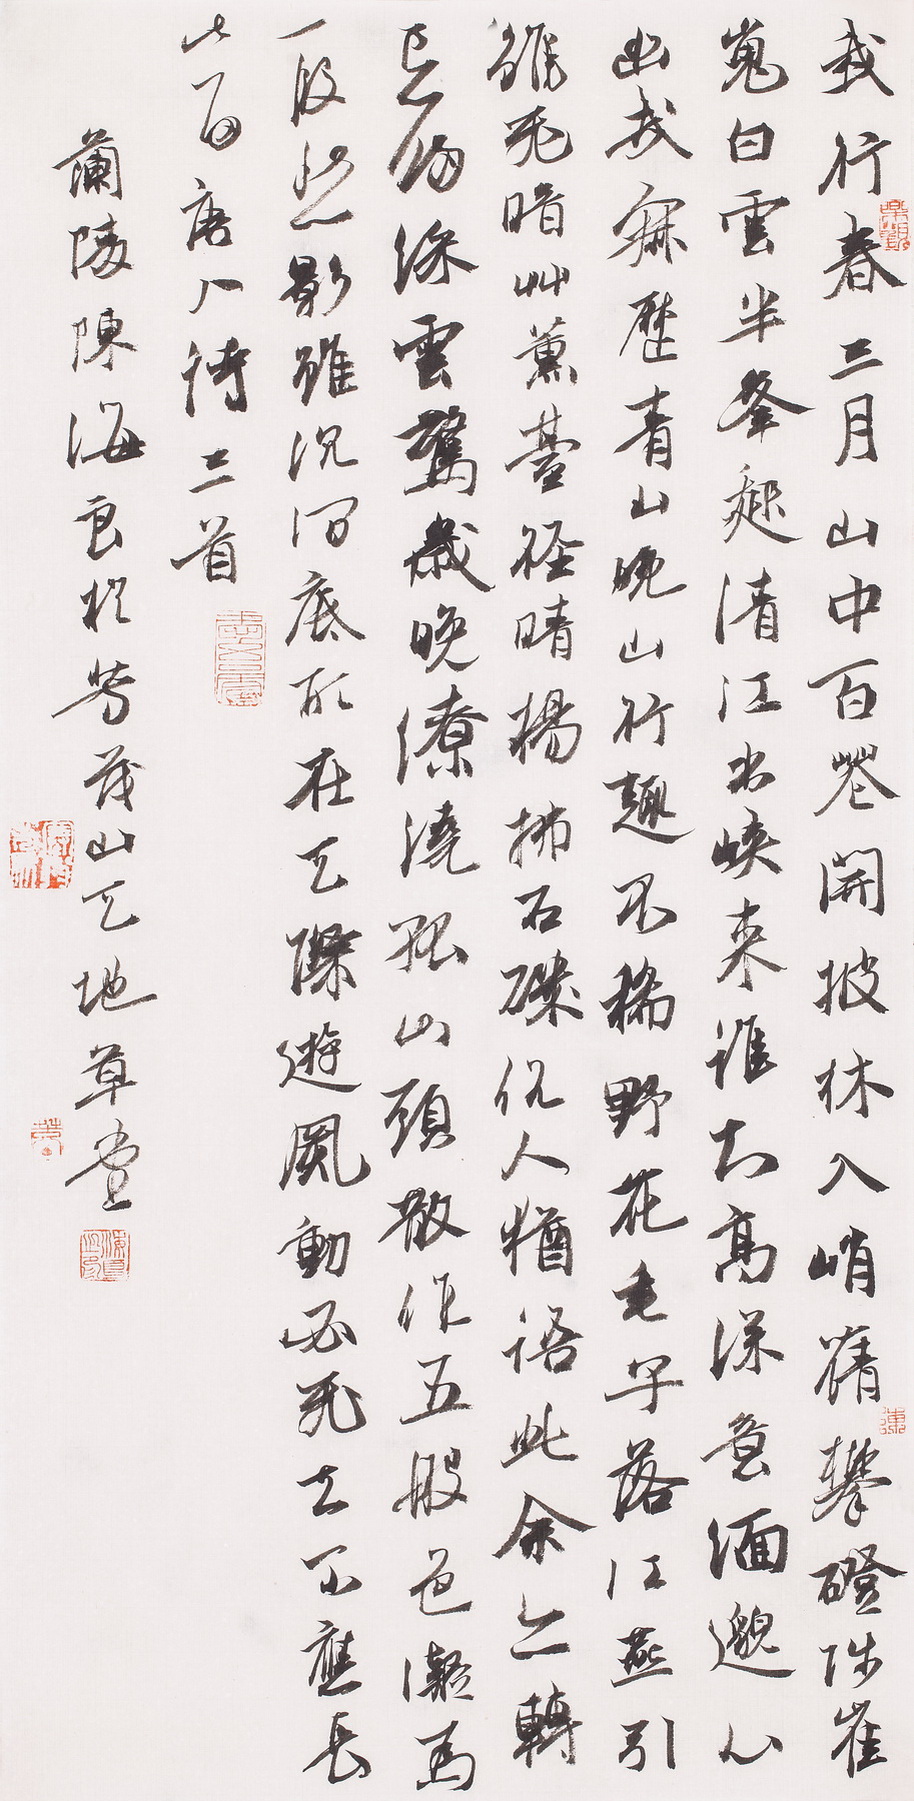 我行春三月山中百花開披林入峭蒨攀磴陟崔
嵬白雲半峯起清江出峽來誰知高深意緬邈心
幽哉寂歷青山晚山行趣不稀野花成子落江燕引
雛飛暗艸薰苔徑晴楊拂石磯俗人猶語此余亦轉
忘歸綵雲驚歲晚繚繞孤山頭散作五般色凝為
一段愁影雖沉澗底形在天際遊風動必飛去不應長
此留唐人詩三首
蘭陵陳海良於芳茂山天地草堂